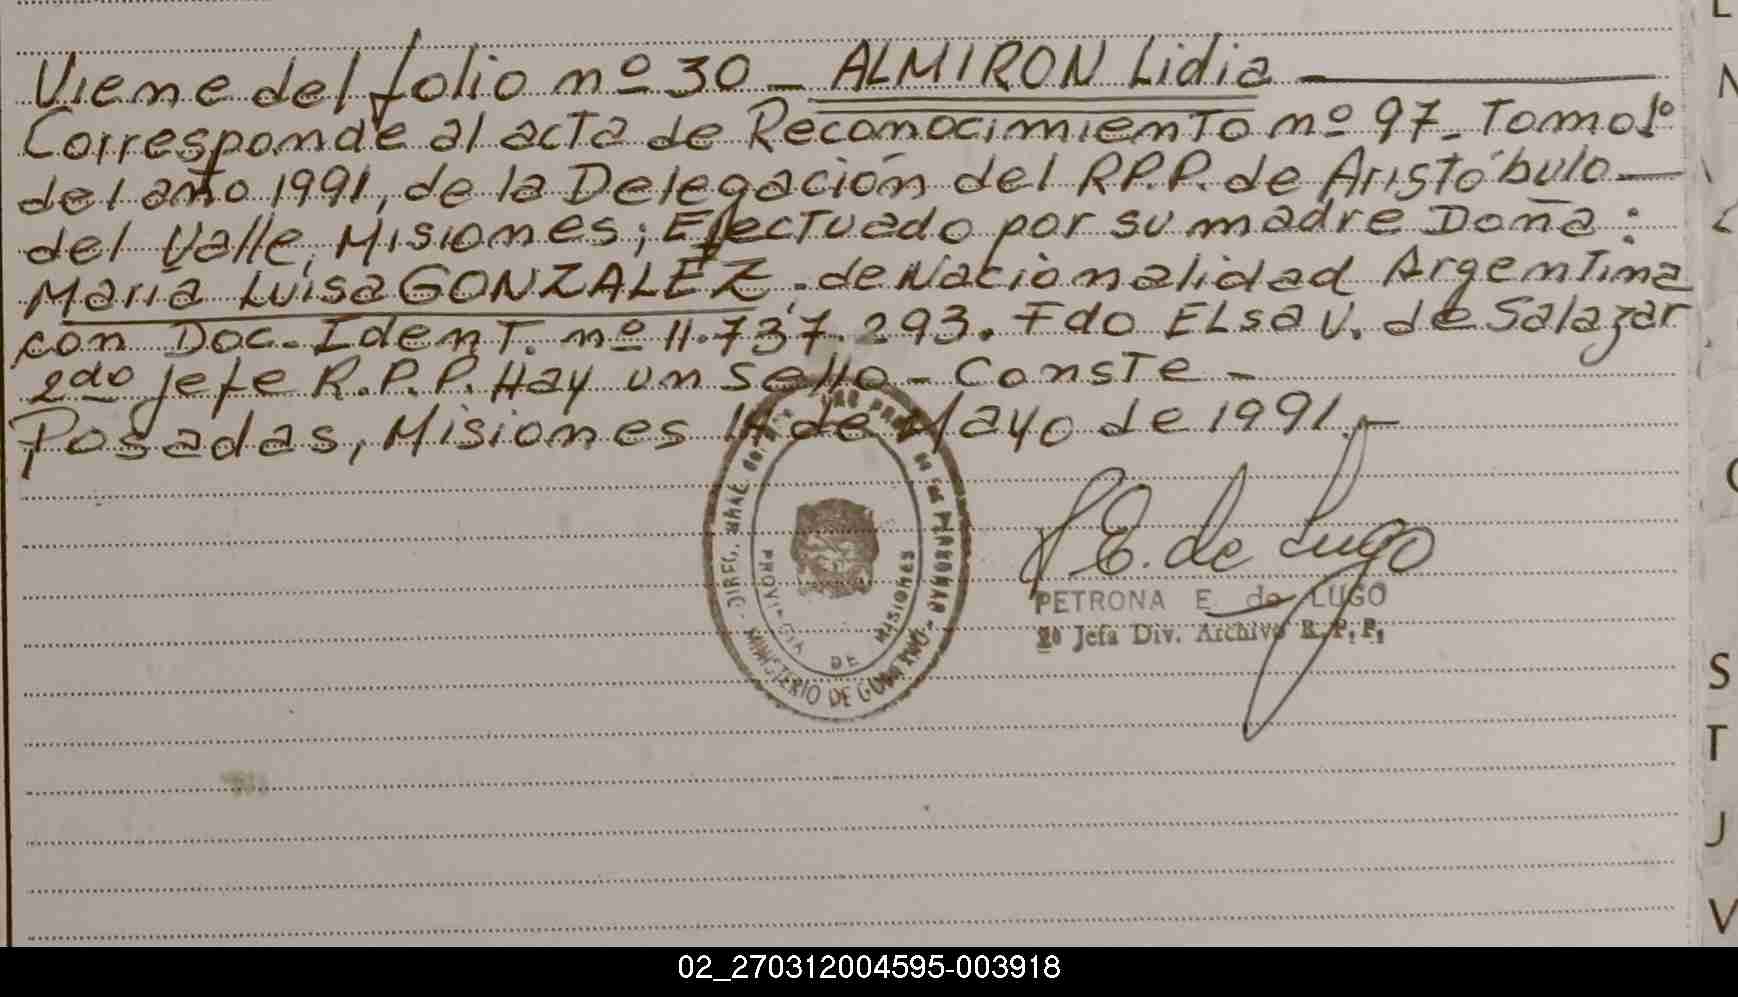 Viene del folio nº 30 - ALMIRON Lidia
Corresponde al acta de Reconocimiento nº 97. Tomo 1º
del año 1991, de la Delegación del R.P.P. de Aristóbulo
del Valle, Misiones; Efectuado por su madre Doña:
María Luisa GONZALEZ. de Nacionalidad Argentina
con Doc. Ident. nº 11.737.293. Fdo Elsa V. de Salazar
2do jefe R.P.P. Hay un sello - Conste -
Posadas, Misiones 14 de Mayo de 1991.-
DIREC. GRAL. DE LAS PERSONAS
MINISTERIO DE GOBIERNO
PROVINCIA DE MISIONES
P E. de Lugo
PETRONA E de LUGO
2º Jefa Div. Archivo R.P.P.
L
N
S
T
J
V
02_270312004595-003918